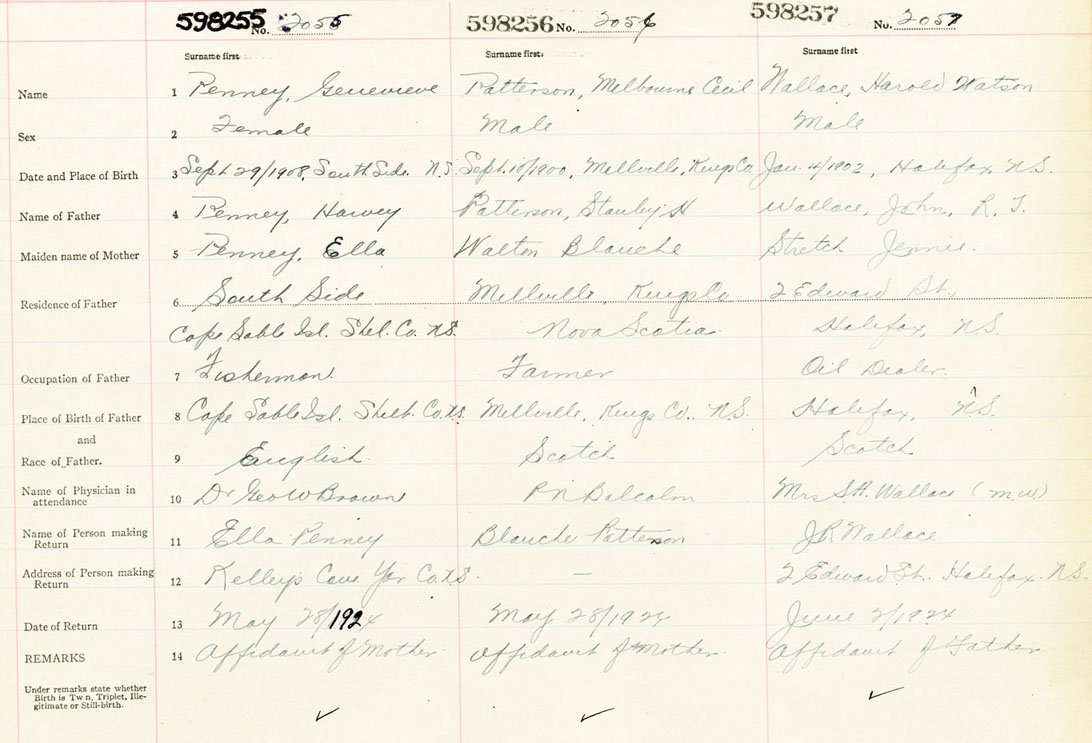 598255 No. 2055 598256 No. 2056 598257 No. 2057
Surname first Surname first: Surname first
Name 1 Penney, Genevieve Patterson, Melbourne Cecil Wallace, Harold Watson
Sex 2 Female Male Male
Date and Place of Birth 3 Sept 29/1908, South Side. N.S. Sept. 10/1900, Millville, Kings Co Jan. 4/1902, Halifax, N.S.
Name of Father 4 Penney, Harvey Patterson, Stanley H Wallace, John, R. T.
Maiden name of Mother 5 Penney, Ella Walton Blanche Stretch Jennie.
Residence of Father 6 South Side Millville, Kings Co 2 Edward St.,
Cape Sable Isl. Shel. Co. N.S. Nova Scotia Halifax, N.S.
Occupation of Father 7 Fisherman. Farmer Oil Dealer.
Place of Birth of Father 8 Cape Sable Isl. Shelb. Co. N.S. Millville, Kings Co. N.S. Halifax, N.S.
and
Race of Father. 9 English. Scotch Scotch
Name of Physician in attendance 10 Dr Geo W Brown P N Balcolm Mrs S.A. Wallace (m.w)
Name of Person making Return 11 Ella Penney Blanche Patterson J R Wallace
Address of Person making Return 12 Kelleys Cove Yar Co. N.S. — 2 Edward St. Halifax. N.S.
Date of Return 13 May 28/1924 May 28/1924 June 2/1924
REMARKS 14 Affidavit of Mother. Affidavit of Mother. Affidavit of Father.
Under remarks state whether
Birth is Tw n, Triplet, Ille-
gitimate or Still-birth.